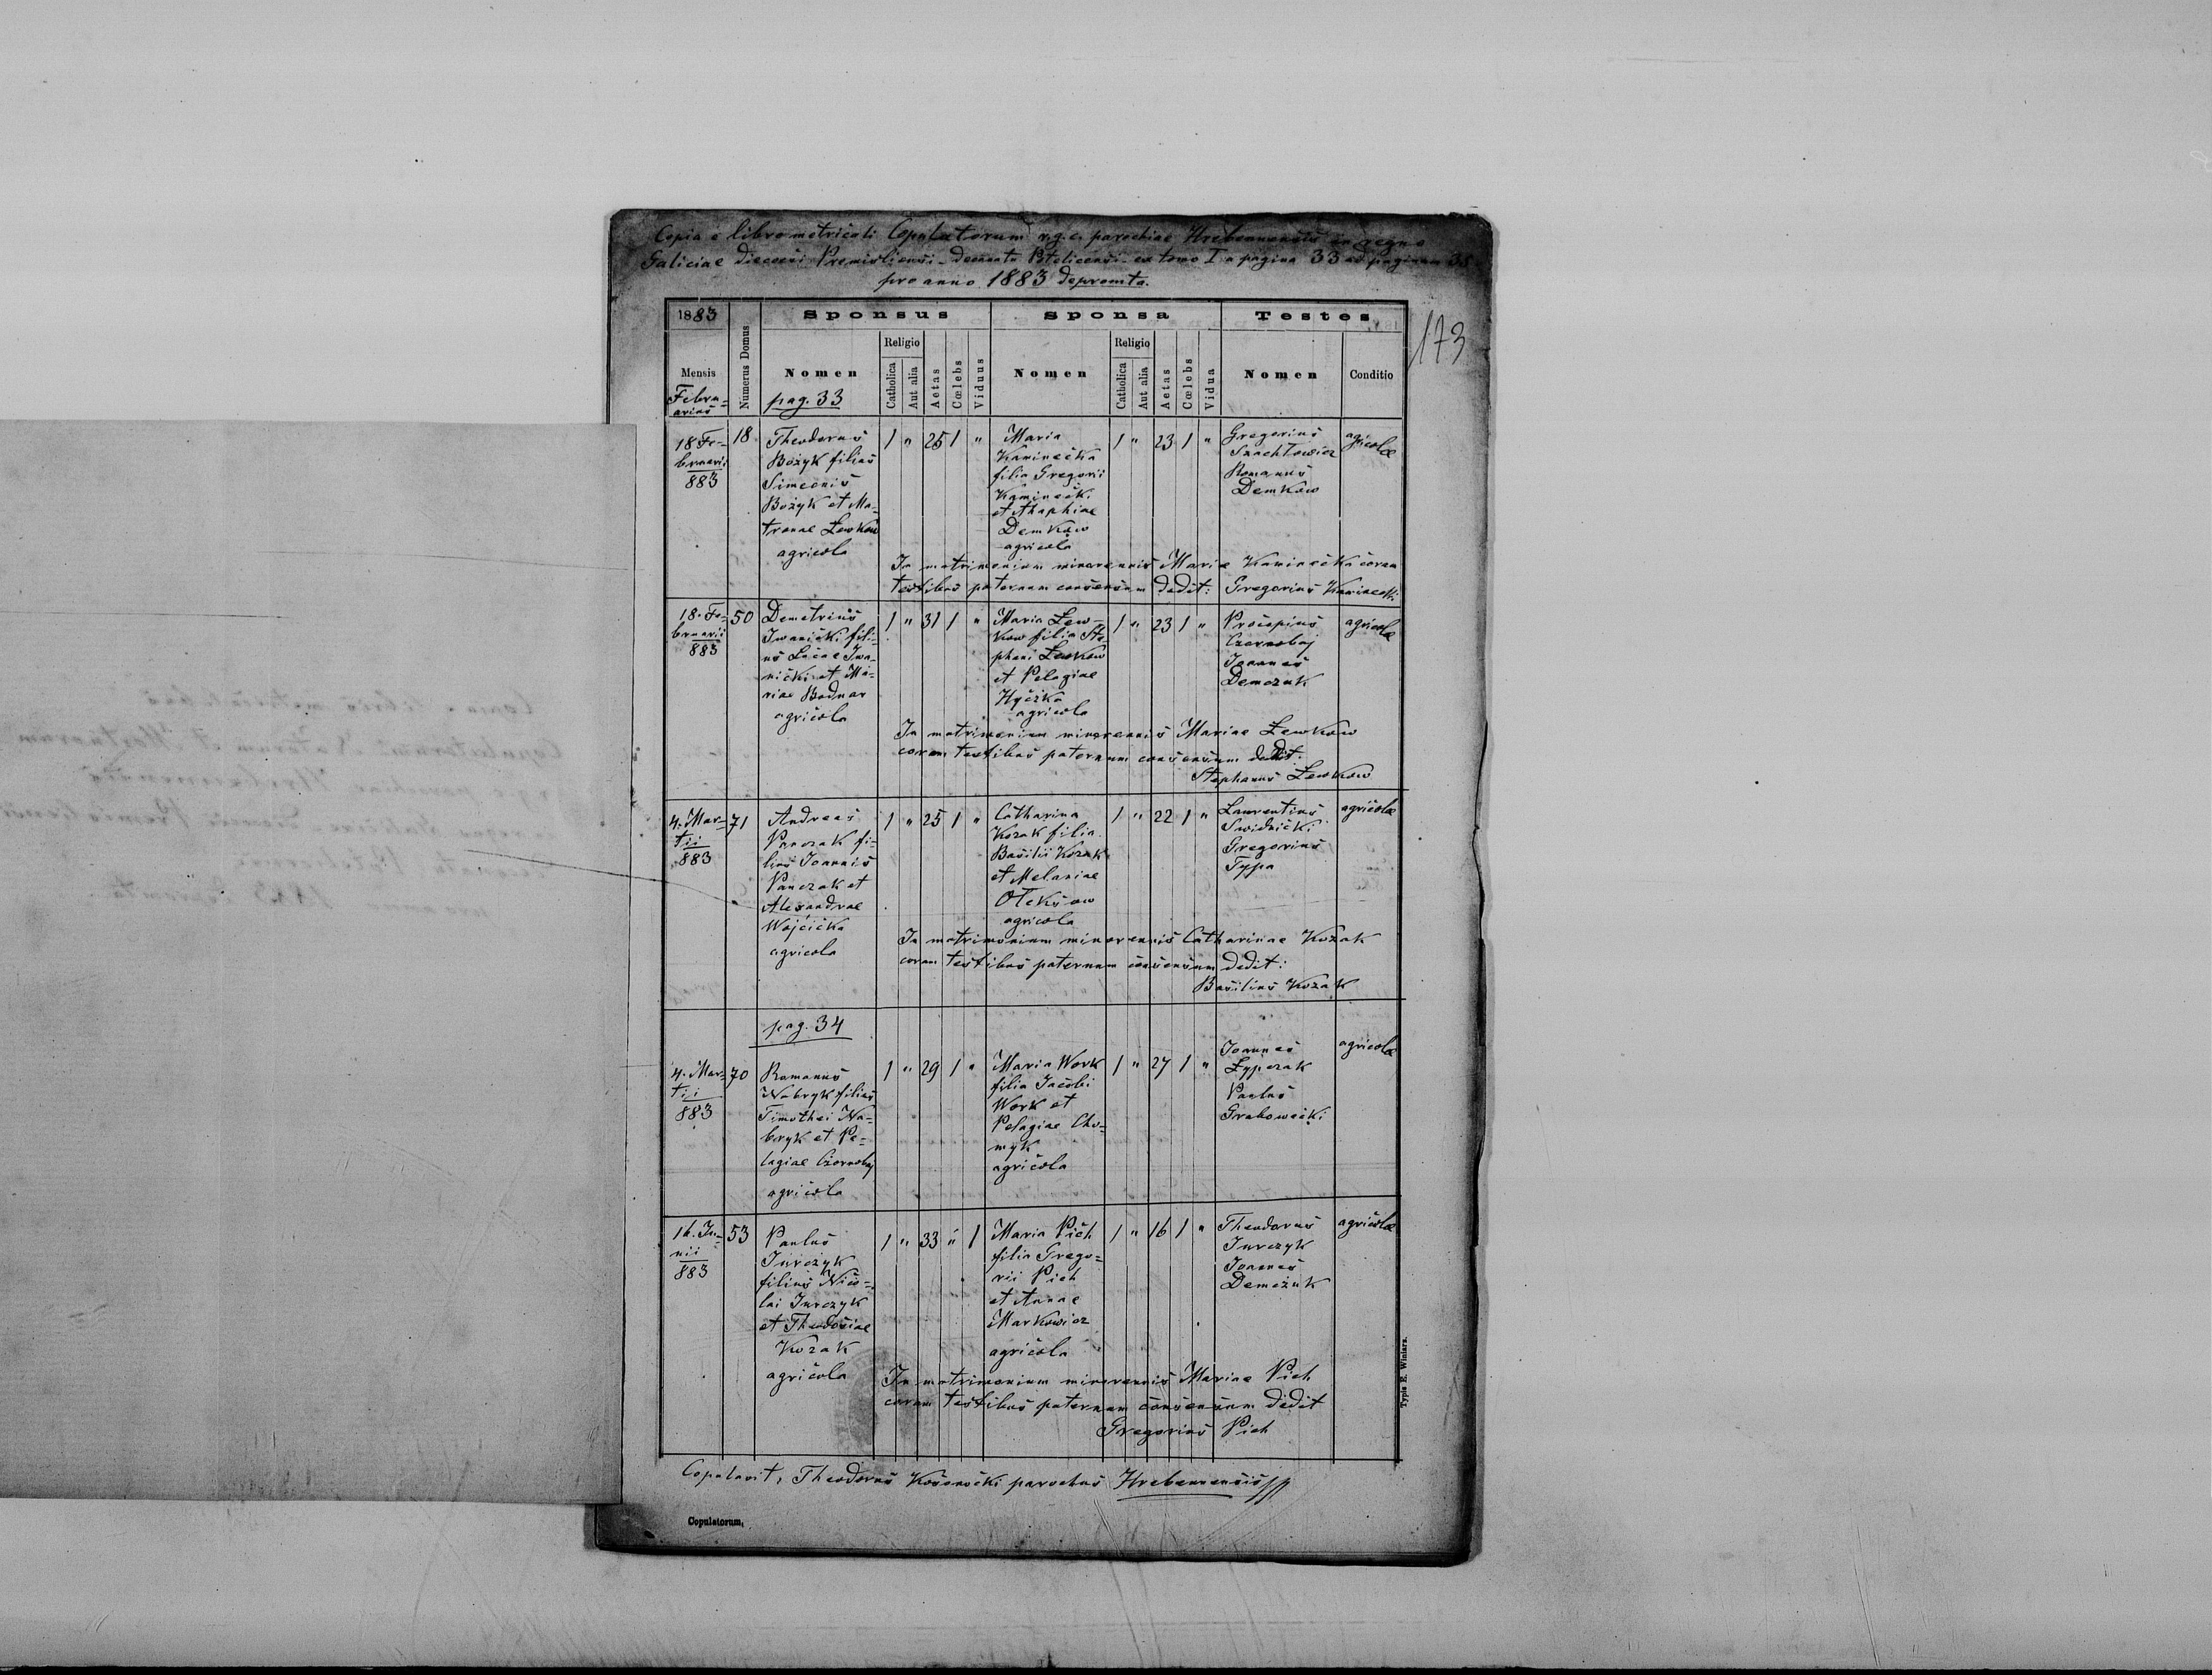 Copia e libro metricali Copulatorum r.g.c. parochiae Hrebennensis in regno
Galiciae dioecesi Premisliensi decanatu ex tomo I a pagina 33 ad paginam 35
pro anno 1883 depromta.
173
1883 Sponsus Sponsa Testes
Mensis Numerus Domus Nomen Religio Catholica Aut alia Aetas Cœlebs Viduus Nomen Religio Catholica Aut alia Aetas Cœlebs Vidua Nomen Conditio
Febru=
arius
pag. 33
18 Fe-
bruarii
883
18
Theodorus
Bożyk filius
Simeonis
Bożyk et Ma-
tronae Lewkow
agricola
1 " 25 1 "
Maria
Kaminečka
filia Gregorii
Kaminečki
et Ahaphiae
Demkow
agricola
1 " 23 1 "
Gregorius
Szachtowicz
Romanus
Demkow
agricolae
In matrimonium minorennis Mariae Kaminečka coram
testibus paternum consensum dedit: Gregorius Kaminecki
18. Fe-
bruarii
883
50
Demetrius
Iwanički fili-
us Lucae Iwa-
nički et Ma-
riae Bodnar
agricola
1 " 31 1 "
Maria Lew-
kow filia Ste
phani Lewkow
et Pelagiae
Hyčzka
agricola
1 " 23 1 "
Procopius
Czornobaj
Joannes
Demczuk
agricolae
In matrimonium minorennis Mariae Lewkow
coram testibus paternum consensum dedit:
Stephanus Lewkow
4. Mar-
tii
883
71
Andreas
Panczak fi-
lius Joannis
Panczak et
Alexandrae
Wojcička
agricola
1 " 25 1 "
Catharina
Kozak filia
Basilii Kozak
et Melaniae
Oleksow
agricola
1 " 22 1 "
Laurentius
Swidnički
Gregorius
Typa
agricolae
In matrimonium minorennis Catharinae Kozak
coram testibus paternum consensum dedit:
Basilius Kozak
pag. 34
4. Mar-
tii
883
70
Romanus
Nabryk filius
Timothei Na-
bryk et Pe-
lagiae Czornobaj
agricola
1 " 29 1 "
Maria Work
filia Jacobi
Work et
Pelagiae Cho-
myk
agricola
1 " 27 1 "
Joannes
Łypczak
Paulus
Grabowečki
agricolae
16. Ju-
nii
883
53
Paulus
Jurczyk
filius Nico-
lai Jurczyk
et Theodosiae
Kozak
agricola
1 " 33 " 1
Maria Pich
filia Grego-
rii Pich
et Annae
Markowicz
agricola
1 " 16 1 "
Theodorus
Jurczyk
Joannes
Demczuk
agricolae
In matrimonium minorennis Mariae Pich
coram testibus paternum consensum dedit
Gregorius Pich
Copulavit: Theodorus Kosonočki parochus Hrebennensis
Copulatorum.
Typis E. Winiarz.